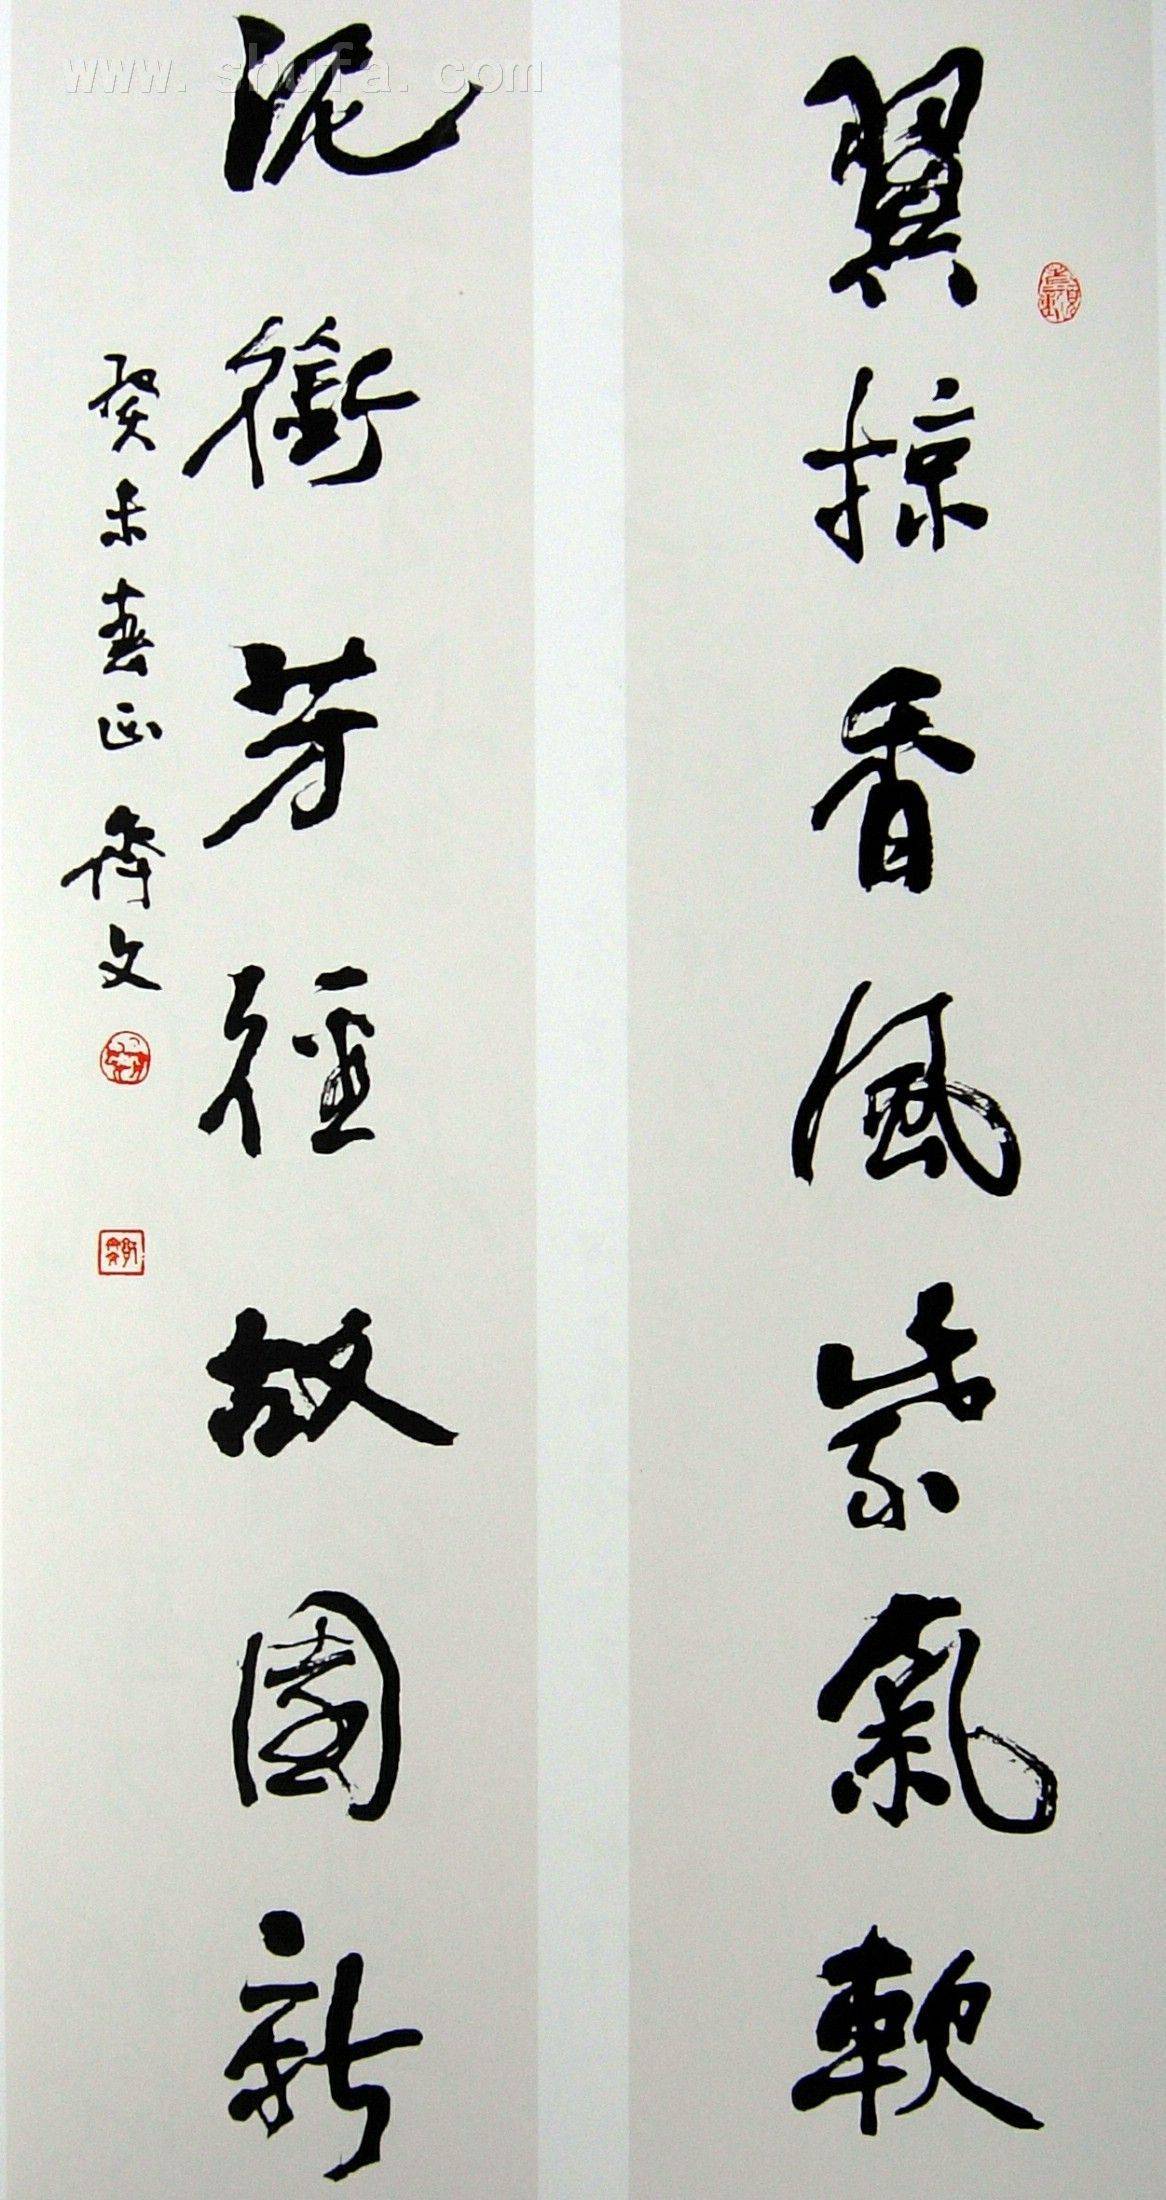 翼掠香風紫氣軟
泥銜芳徑故園新
癸未春正齊文
www.shufa.com